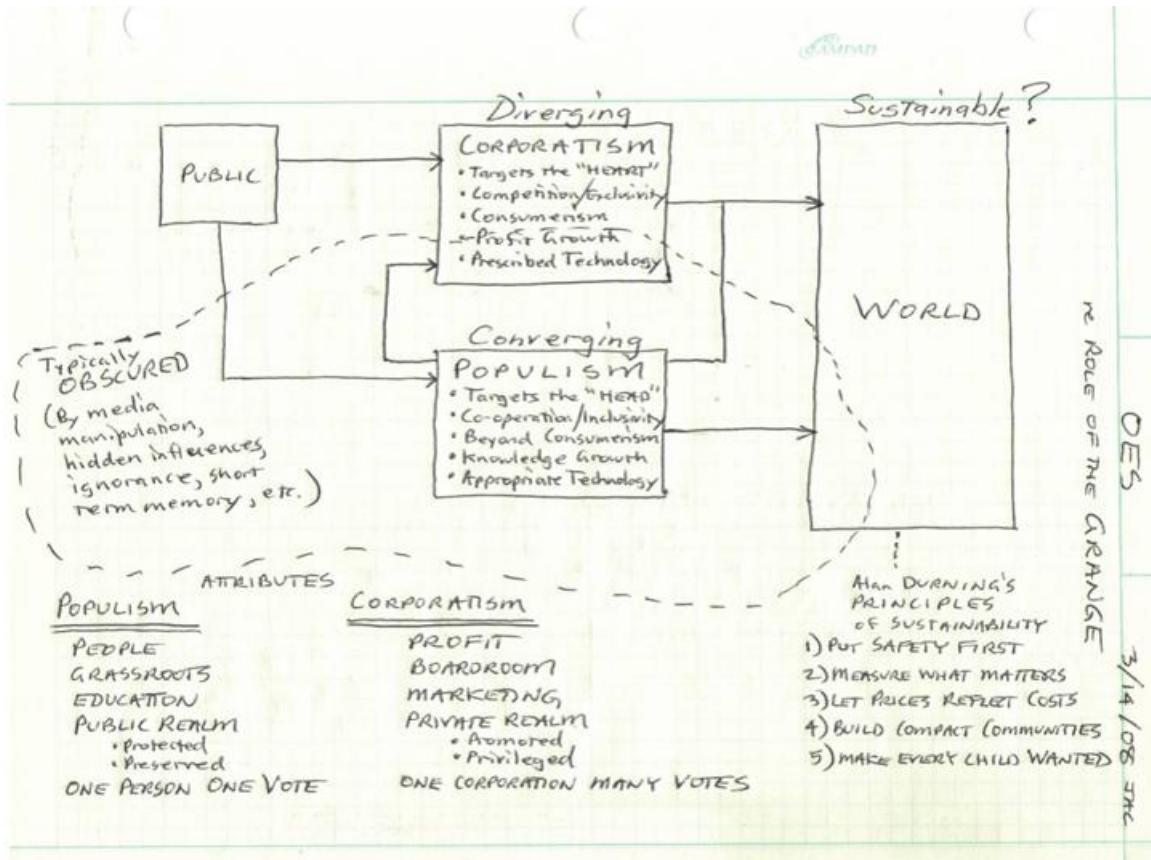 AMPAD
Diverging
Sustainable?
PUBLIC
CORPORATISM
• Targets the "HEART"
• Competition/Exclusivity
• Consumerism
• Profit Growth
• Prescribed Technology
WORLD
Converging
POPULISM
• Targets the "HEAD"
• Co-operation/Inclusivity
• Beyond Consumerism
• Knowledge Growth
• Appropriate Technology
Typically
OBSCURED
(By media
manipulation,
hidden influences,
ignorance, short
term memory, etc.)
ATTRIBUTES
POPULISM
PEOPLE
GRASSROOTS
EDUCATION
PUBLIC REALM
• Protected
• Preserved
ONE PERSON ONE VOTE
CORPORATISM
PROFIT
BOARDROOM
MARKETING
PRIVATE REALM
• Armored
• Privileged
ONE CORPORATION MANY VOTES
Alan DURNING'S
PRINCIPLES
OF SUSTAINABILITY
1) PUT SAFETY FIRST
2) MEASURE WHAT MATTERS
3) LET PRICES REFLECT COSTS
4) BUILD COMPACT COMMUNITIES
5) MAKE EVERY CHILD WANTED
re ROLE OF THE GRANGE
OES 3/14/08 JAC